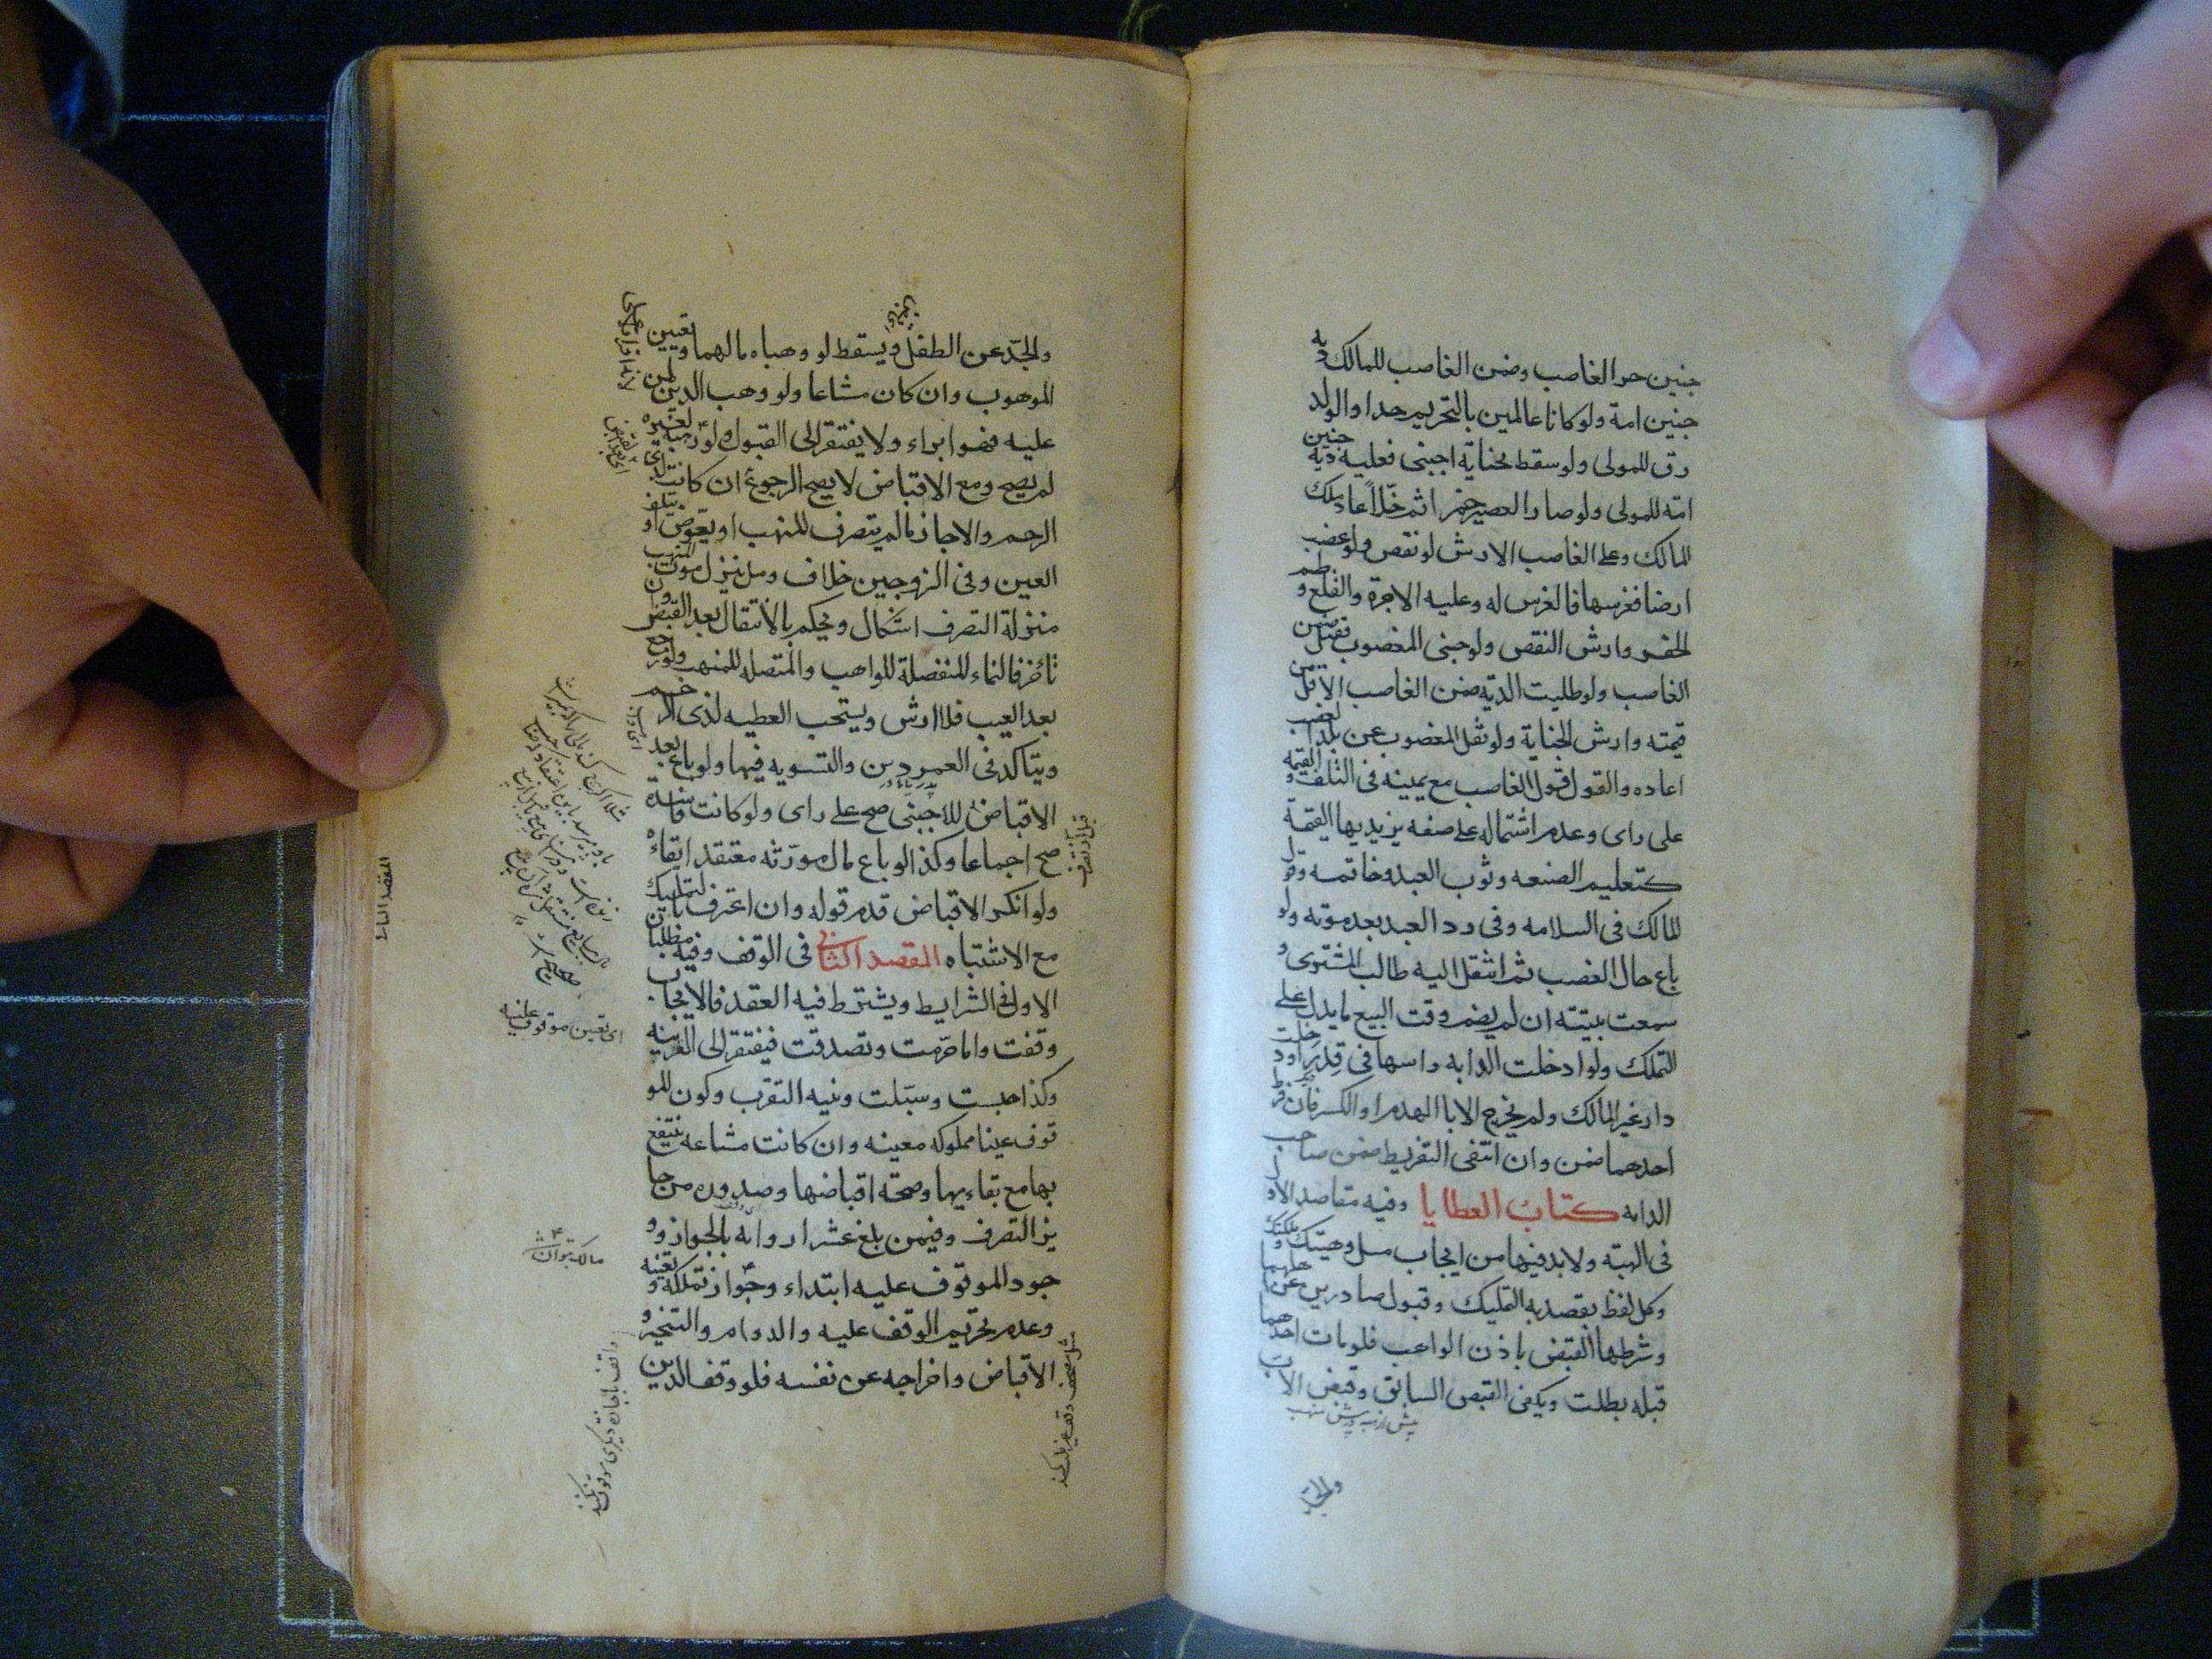 جنين حر الغاصب وضمن الغاصب للمالك دية
جنين امة ولو كانا عالمين بالتحريم حدا والولد
رق للمولى ولو سقط بجناية اجنبى فعليه دية جنين
امة للمولى ولو صار العصير خمرا ثم خلا عاد ملك
للمالك وعلى الغاصب الارش لو نقص ولو غصب
ارضا فغرسها فالغرس له وعليه الاجرة والقلع و طم
الحفر وارش النقص ولو جنى المغصوب فقتل ضمن
الغاصب ولو طلبت الدية ضمن الغاصب الاقل من
قيمته وارش الجناية ولو نقل المغصوب عن بلد الغصب
اعاده والقول قول الغاصب مع يمينه فى التلف و القيمة
على راى وعدم اشتماله على صفه يزيد بها القيمة
كتعليم الصنعه وثوب العبد وخاتمه وقول
المالك فى السلامه وفى رد العبد بعد موته ولو
باع حال الغصب ثم انتقل اليه طالب المشترى و
سمعت بينته ان لم يضم وقت البيع ما يدل على
التملك ولو ادخلت الدابه راسها فى قدر او دخلت
دار غير المالك ولم يخرج الا بالهدم او الكسر فان فرط
احدهما ضمن وان انتفى التفريط ضمن صاحب
الدابه كتاب العطايا وفيه مقاصد الاول
فى الهبة ولا بد فيها من ايجاب مثل وهبتك و ملكتك
وكل لفظ يقصد به التمليك وقبول صادرين عن اهلهما
وشرطها القبض باذن الواهب فلو مات احدهما
قبله بطلت ويكفى القبض السابق وقبض الاب
والجد
والجدّ عن الطفل ويسقط لو وهباه مالهما ويتعين
الموهوب وان كان مشاعا ولو وهب الدين لمن
عليه فهو ابراء ولا يفتقر الى القبول ولو وهبه لغيره
لم يصح ومع الاقباض لا يصح الرجوع ان كانت لذى
الرحم والا جاز ما لم يتصرف المتهب او يعوض او يتلف
العين وفى الزوجين خلاف وهل ينزل موت المتهب
منزلة التصرف اشكال ويحكم بالانتقال بعد القبض وان
تأخر فالنماء المنفصلة للواهب والمتصله للمتهب ولو رجع
بعد العيب فلا ارش ويستحب العطيه لذى الرحم
ويتاكد فى العمودين والتسويه فيها ولو باع بعد
الاقباض للاجنبى صح على راى ولو كانت فاسدة
صح اجماعا وكذا لو باع مال مورّثه معتقد ابقاءه
ولو انكر الاقباض قدم قوله وان اعترف بالتمليك
مع الاشتباه المقصد الثانى فى الوقف وفيه مطلبان
الاول فى الشرايط ويشترط فيه العقد فالايجاب
وقفت واما حرّمت وتصدقت فيفتقر الى القرينه
وكذا حبست وسبّلت ونيه التقرب وكون المو
قوف عينا مملوكه معينه وان كانت مشاعه ينتفع
بها مع بقاءيها وصحة اقباضها وصدوره من جا
يز التصرف وفيمن بلغ عشرا رواية بالجواز وو
جود الموقوف عليه ابتداء وجواز تملكه و تعينه
وعدم تحريم الوقف عليه والدوام والتنجيز و
الاقباض واخراجه عن نفسه فلو وقف الدين
اى تعين موقوف عليه
مالك توان شد